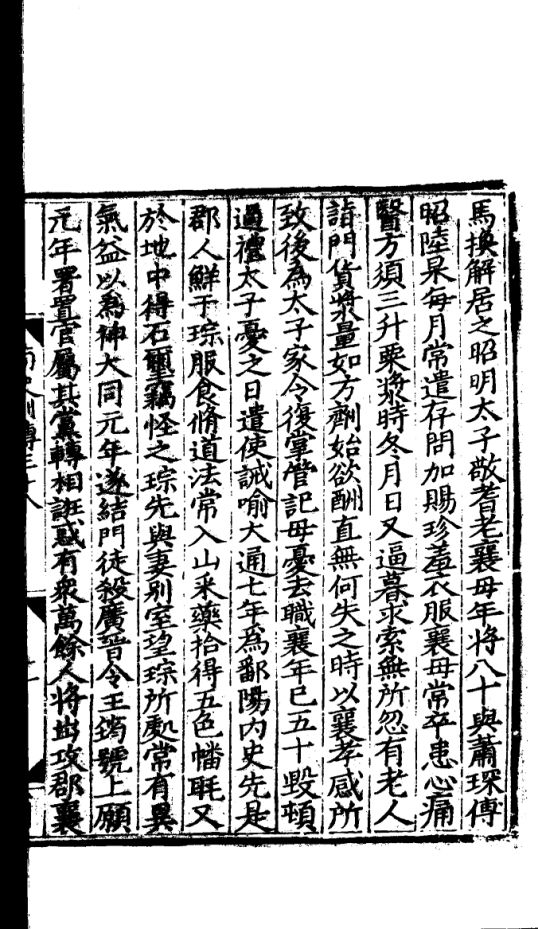 馬換解居之昭明太子敬耆老襄母年將八十與蕭琛傅
昭陸杲每月常遣存問加賜珍羞衣服襄母常卒患心痛
醫方須三升粟漿時冬月日又逼暮求索無所忽有老人
詣門貨漿量如方劑始欲酬直無何失之時以襄孝感所
致後為太子家令復掌管記母憂去職襄年已五十毀頓
過禮太子憂之日遣使誡喻大通七年為鄱陽內史先是
郡人鮮于琮服食脩道法常入山采藥拾得五色幡眊又
於地中得石璽竊怪之琮先與妻別室望琮所處常有異
氣益以為神大同元年遂結門徒殺廣晉令王筠號上願
元年署置官屬其黨轉相誑惑有衆萬餘人將出攻郡襄